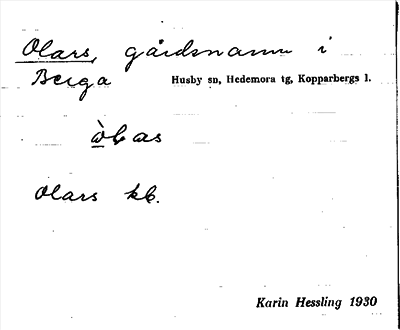 Olars, gårdsnamn i
Berga Husby sn, Hedemora tg, Kopparbergs l.
Olars kb.
Karin Hessling 1930